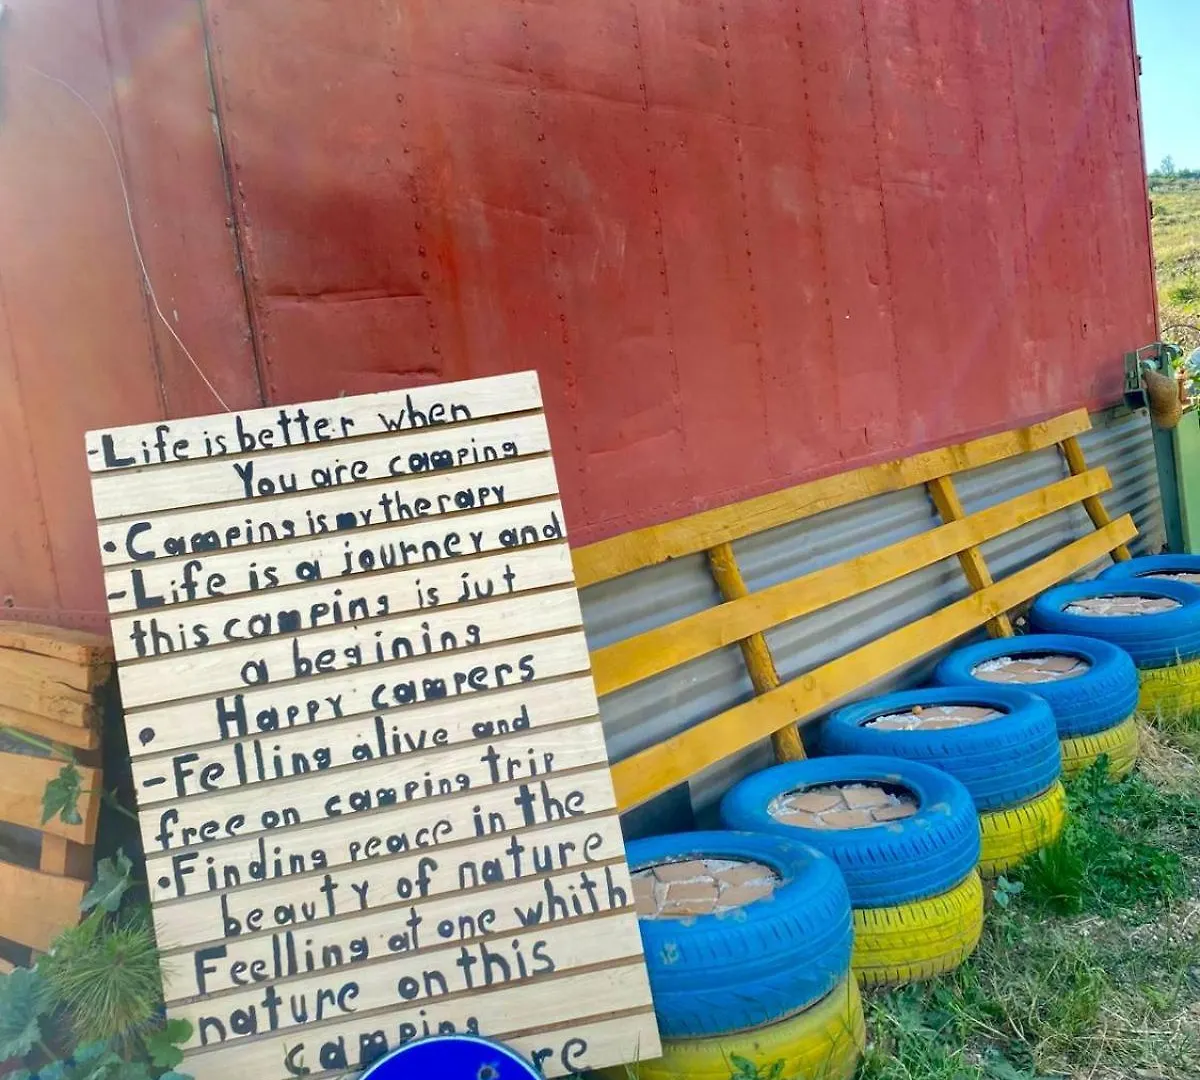 -Life is better when
You are camping
• Camping is my therapy
-Life is a journey and
this camping is jut
a begining
• Happy campers
-Felling alive and
free on camping trip
•Finding peace in the
beauty of nature
Feelling at one whith
nature on this
camping